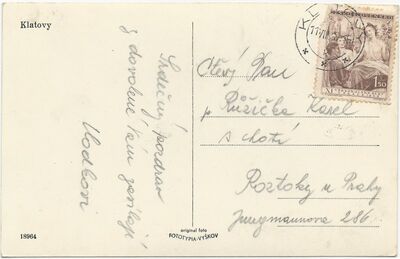 Klatovy
Srdečný pozdrav
z dovolené Vám zasílají
Vlodkovi
18964
original foto
FOTOTYPIA-VYŠKOV
KLATOVY
ČESKOSLOVENSKO
1,50
Ctěný Pan
p Růžička Karel
s chotí
Roztoky u Prahy
Jungmannova 286